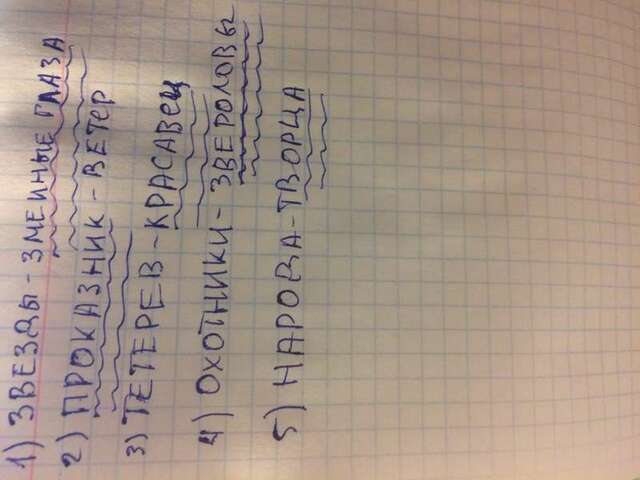 1) ЗВЕЗДЫ - ЗМЕИНЫЕ ГЛАЗА
2) ПРОКАЗНИК - ВЕТЕР
3) ТЕТЕРЕВ - КРАСАВЕЦ
4) ОХОТНИКИ - ЗВЕРОЛОВЫ
5) НАРОДА - ТВОРЦА